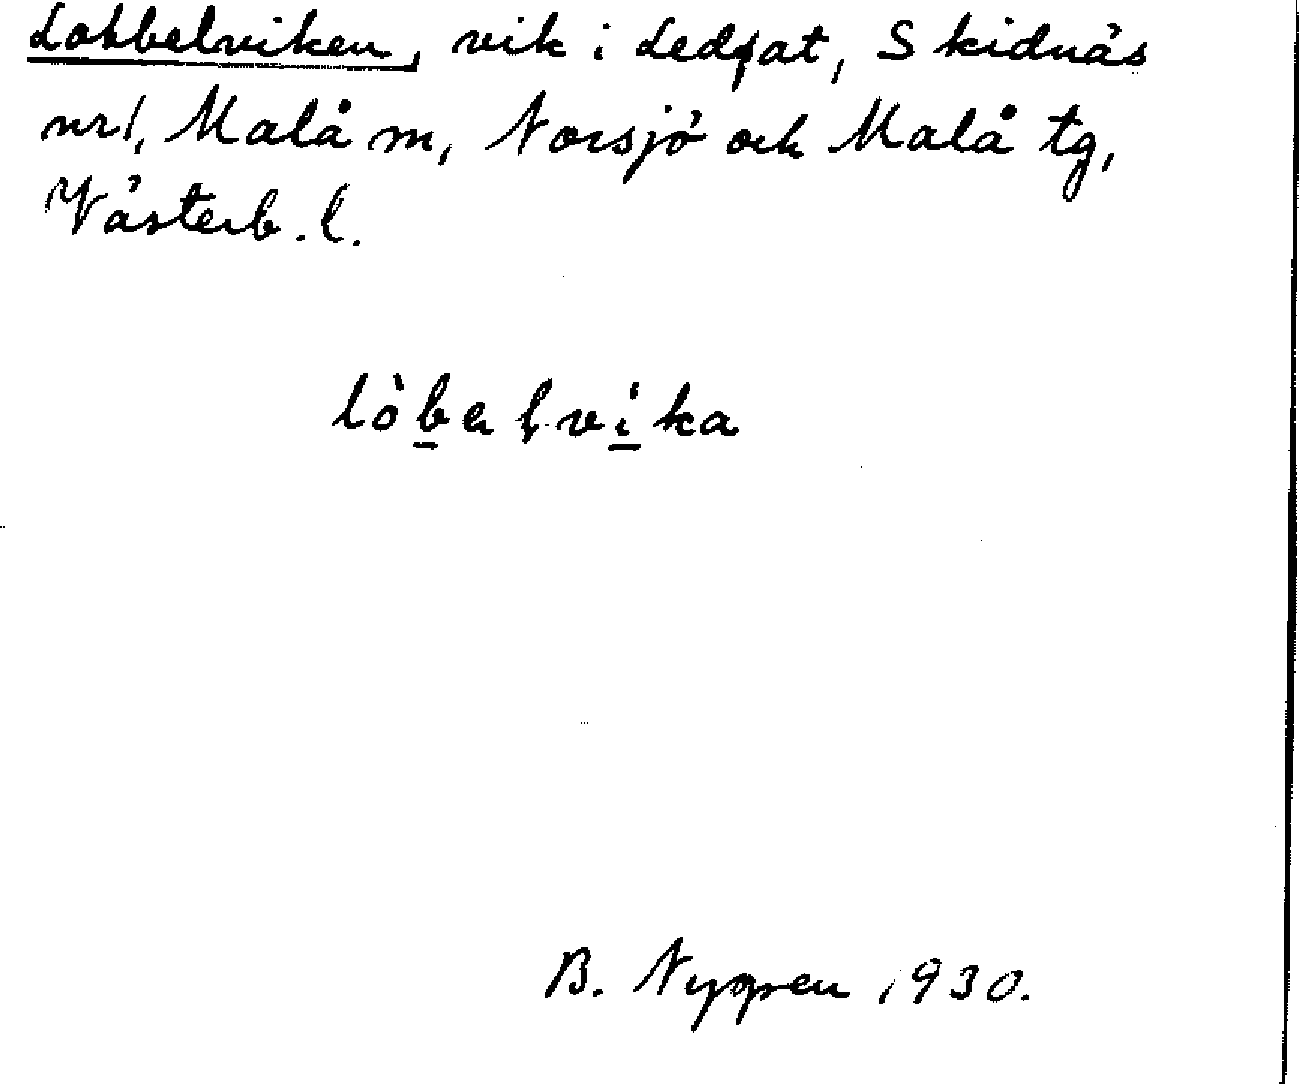 Lobbelviken, vik i Ledfat, Skidnäs
nr 1, Malå m, Norsjö och Malå tg,
Västerb. l.
lòbelvika
B. Nygren 1930.